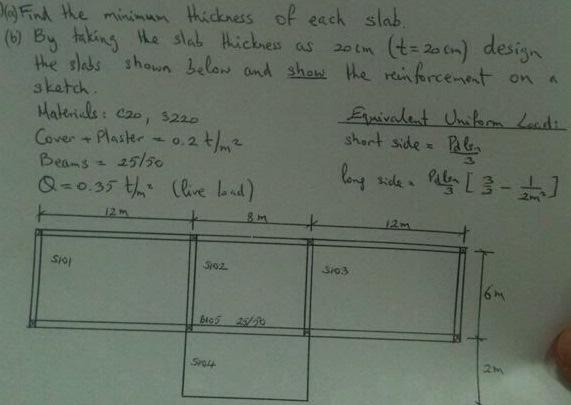 (a) Find the minimum thickness of each slab.
(b) By taking the slab thickness as 20 cm (t = 20 cm) design
the slabs shown below and show the reinforcement on a
sketch.
Materials: C20, S220
Cover + Plaster = 0.2 t/m²
Beams = 25/50
Q = 0.35 t/m² (live load)
Equivalent Uniform Load:
short side = Pd lsn/3
long side = Pd lsn/3 [3/3 - 1/2m²]
12m 8m 12m
S101 S102 S103
6m
B105 25/50
S104
2m